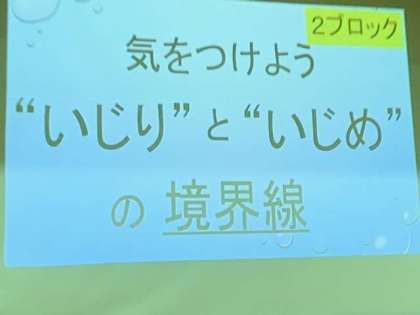 2ブロック
気をつけよう
“いじり”と“いじめ”
の境界線